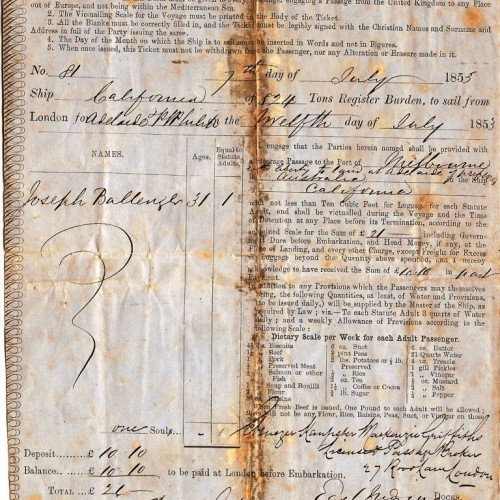 out of Europe, and not being within the Mediterranean Sea.
2. The Victualling Scale for the Voyage must be printed in the Body of the Ticket.
3. All the Blanks must be correctly filled in, and the Ticket must be legibly signed with the Christian Names and Surname and
Address in full of the Party issuing the same.
4. The Day of the Month on which the Ship is to sail must be inserted in Words and not in Figures.
5. When once issued, this Ticket must not be withdrawn from the Passenger, nor any Alteration or Erasure made in it.
No. 81 7th day of July 1853
Ship California of 824 Tons Register Burden, to sail from
London for Adelaide & Pt Philip the Twelfth day of July 1853
NAMES. Ages. Equal to Statute Adults.
Joseph Ballenger 31 1
engage that the Parties herein named shall be provided with
Steerage Passage to the Port of Melbourne
to land at Adelaide
Australia in the Ship
California
not less than Ten Cubic Feet for Luggage for each Statute
Adult, and shall be victualled during the Voyage and the Time
of Detention at any Place before its Termination, according to the
Scale for the Sum of £21 including Government
Dues before Embarkation, and Head Money, if any, at the
Place of Landing, and every other Charge, except Freight for Excess
of Luggage beyond the Quantity above specified, and I hereby
acknowledge to have received the Sum of £10.10 in part
In addition to any Provisions which the Passengers may themselves
bring, the following Quantities, at least, of Water and Provisions,
(to be issued daily,) will be supplied by the Master of the Ship, as
required by Law; viz.—To each Statute Adult 3 quarts of Water
daily; and a weekly Allowance of Provisions according to the
following Scale:
Dietary Scale per Week for each Adult Passenger.
Biscuits
Beef
Pork
Preserved Meat
Salmon or other Fish
Soup and Bouilli
Flour
oz. Suet
pint Peas
lbs. Potatoes or ½ lb. Preserved
Rice
oz. Tea
Coffee or Cocoa
lb. Sugar
oz. Butter
21 Quarts Water
oz. Treacle
1 gill Pickles
Vinegar
½ oz. Mustard
Salt
Pepper
When Fresh Beef is issued, One Pound to each Adult will be allowed;
not be any Flour, Rice, Raisins, Peas, Suet, or Vinegar on those
one Souls 1
Mackenzie Griffiths
Licensed Passage Broker
27 London
Deposit £10.10
Balance £10.10 to be paid at London before Embarkation.
TOTAL £21
DOCKS